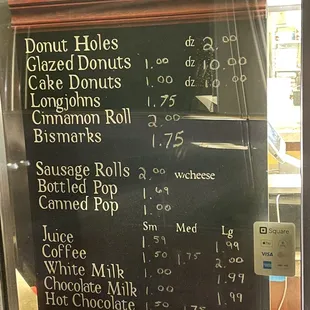 Donut Holes dz 2.00
Glazed Donuts 1.00 dz 10.00
Cake Donuts 1.00 dz 10.00
Longjohns 1.75
Cinnamon Roll 2.00
Bismarks 1.75
Sausage Rolls 2.00 w/cheese
Bottled Pop 1.69
Canned Pop 1.00
Sm Med Lg
Juice 1.59 1.99
Coffee 1.50 1.75 2.00
White Milk 1.00 1.99
Chocolate Milk 1.00 1.99
Hot Chocolate 1.50 1.75
Square
VISA